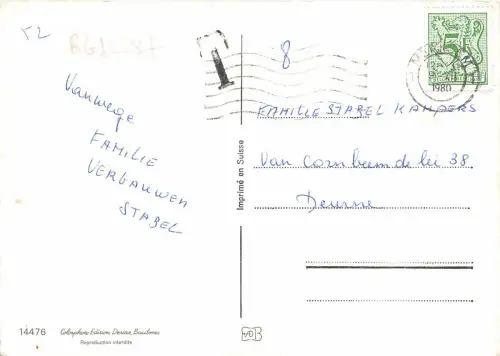 52
T
8
5F
1980
Vanwege
FAMILIE
VERCAUWEN
STABEL
FAMILIE STABEL KAMPERS
Van Cornbeemdelei 38
Deurne
Imprimé en Suisse
14476
Colorphone Edition, Dereze, Baulmes
Reproduction interdite